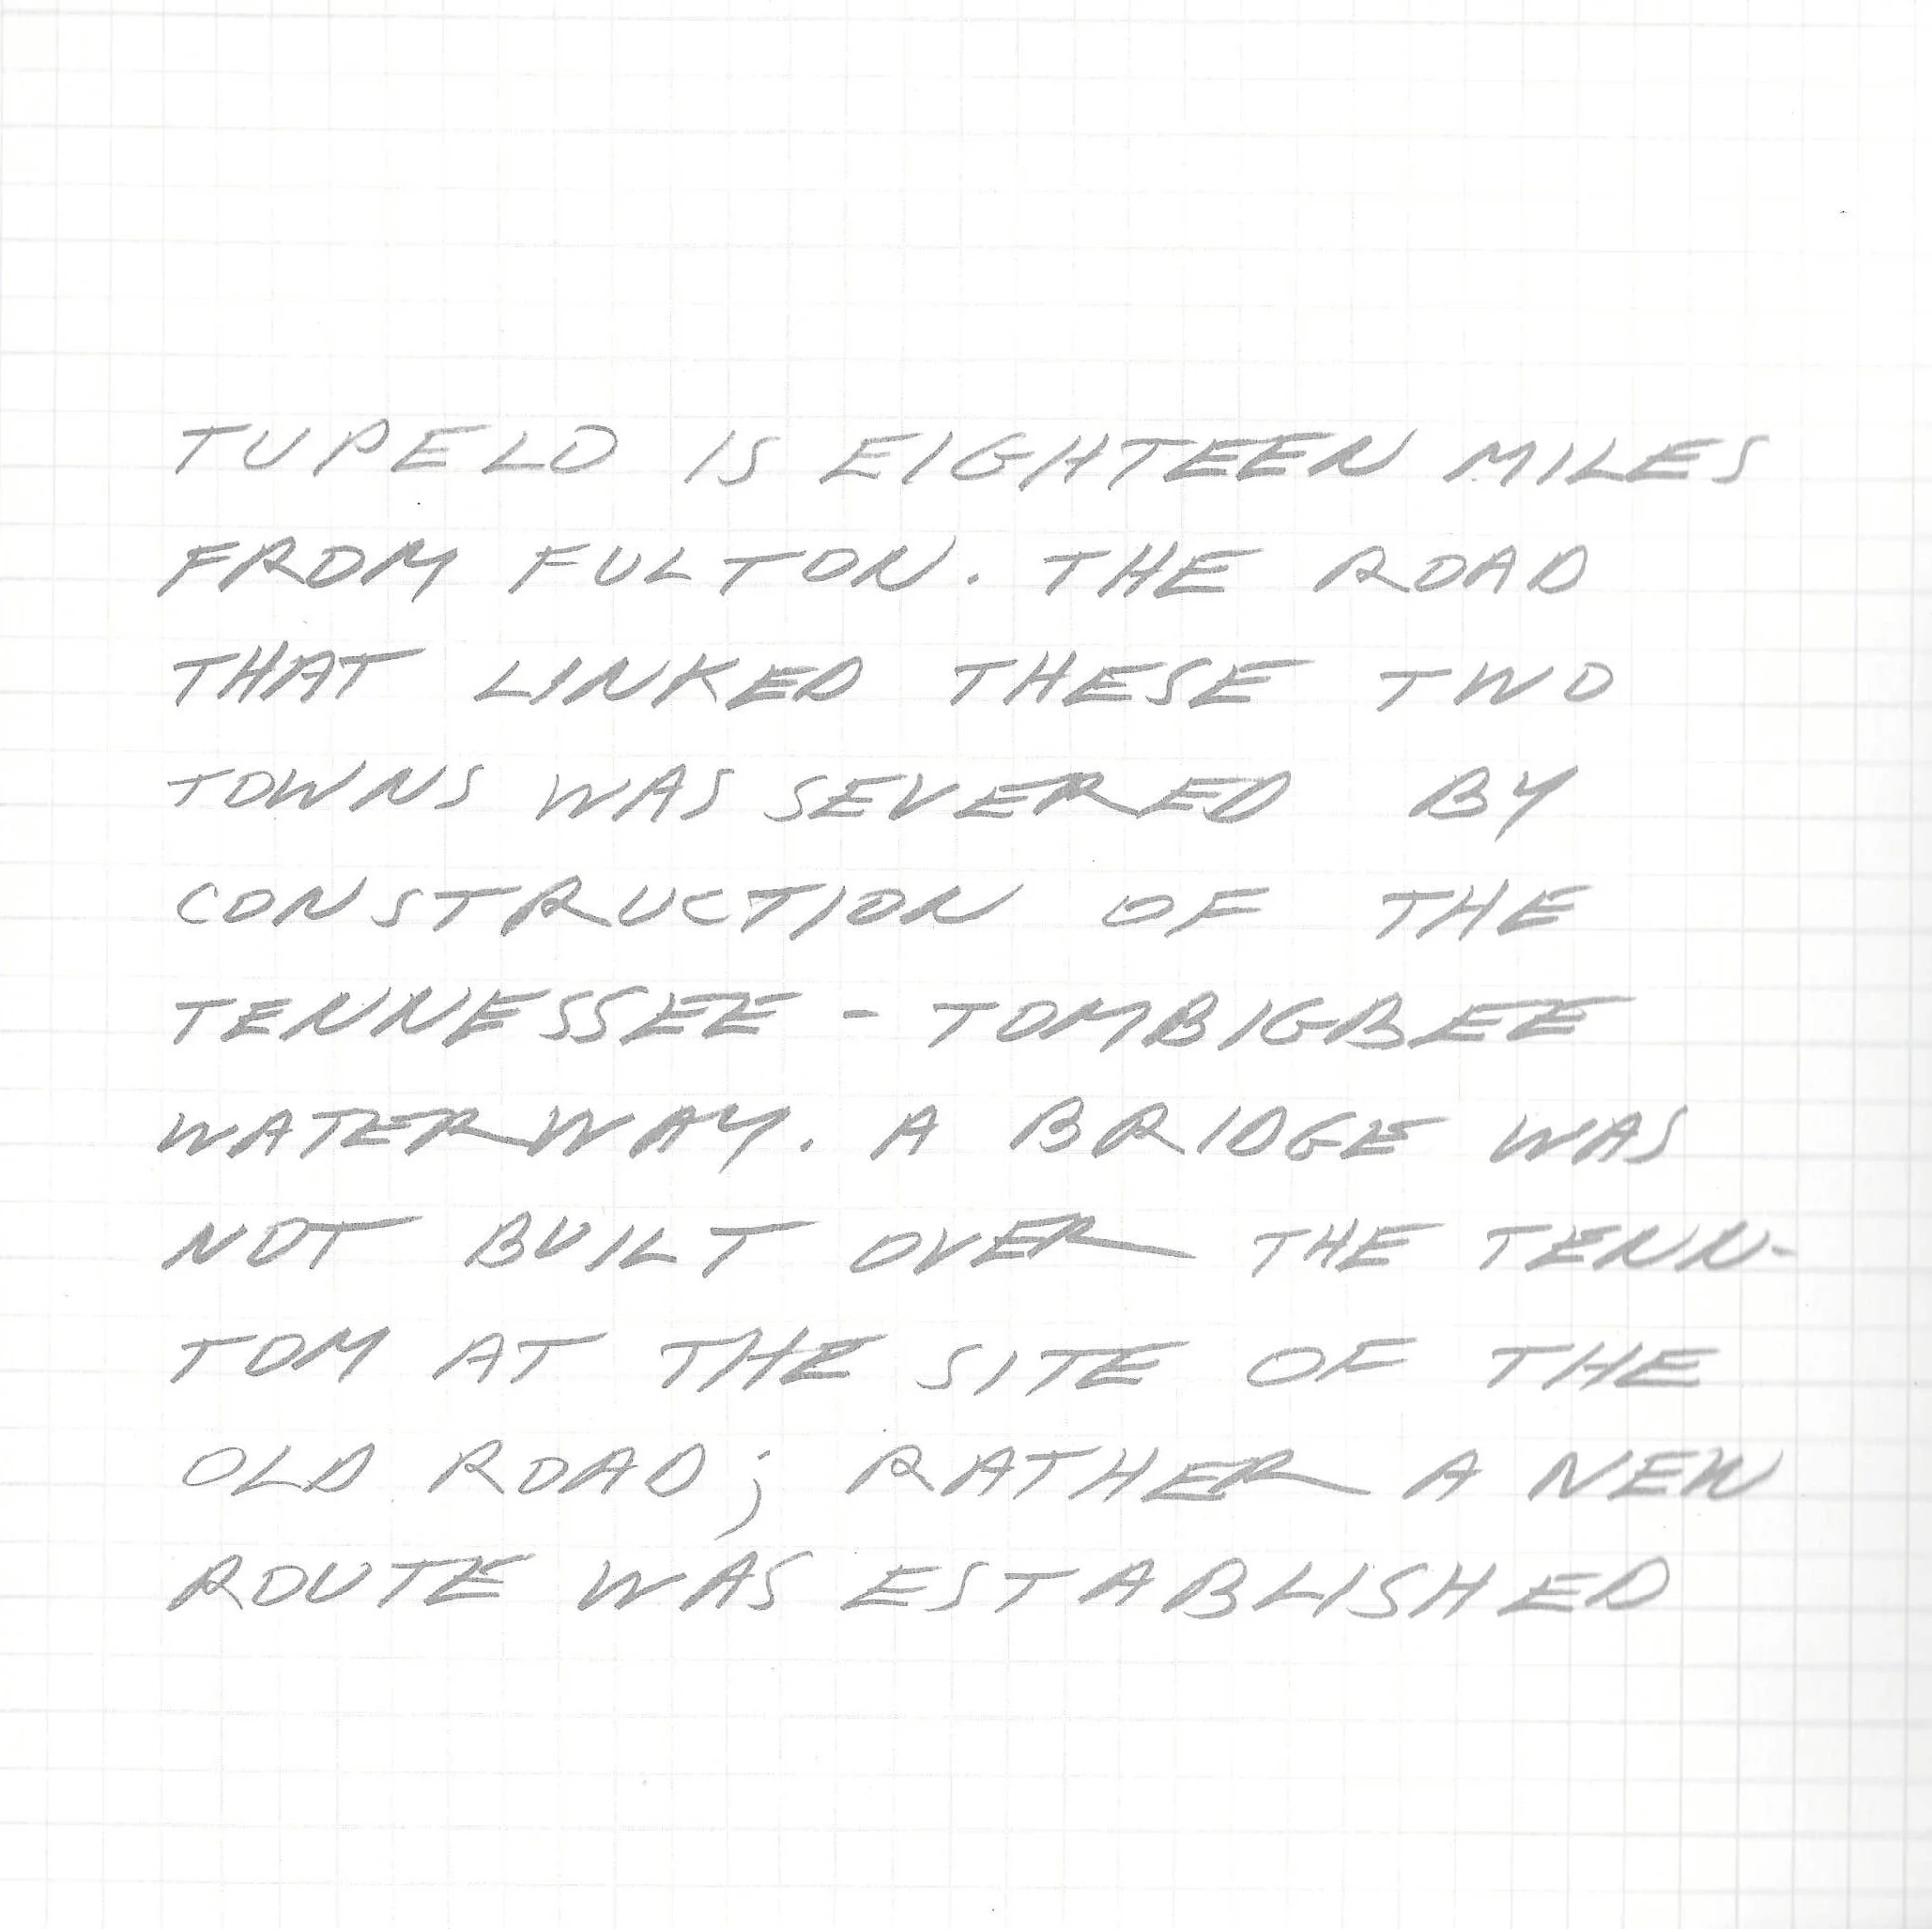 TUPELO IS EIGHTEEN MILES
FROM FULTON. THE ROAD
THAT LINKED THESE TWO
TOWNS WAS SEVERED BY
CONSTRUCTION OF THE
TENNESSEE - TOMBIGBEE
WATERWAY. A BRIDGE WAS
NOT BUILT OVER THE TENN-
TOM AT THE SITE OF THE
OLD ROAD; RATHER A NEW
ROUTE WAS ESTABLISHED